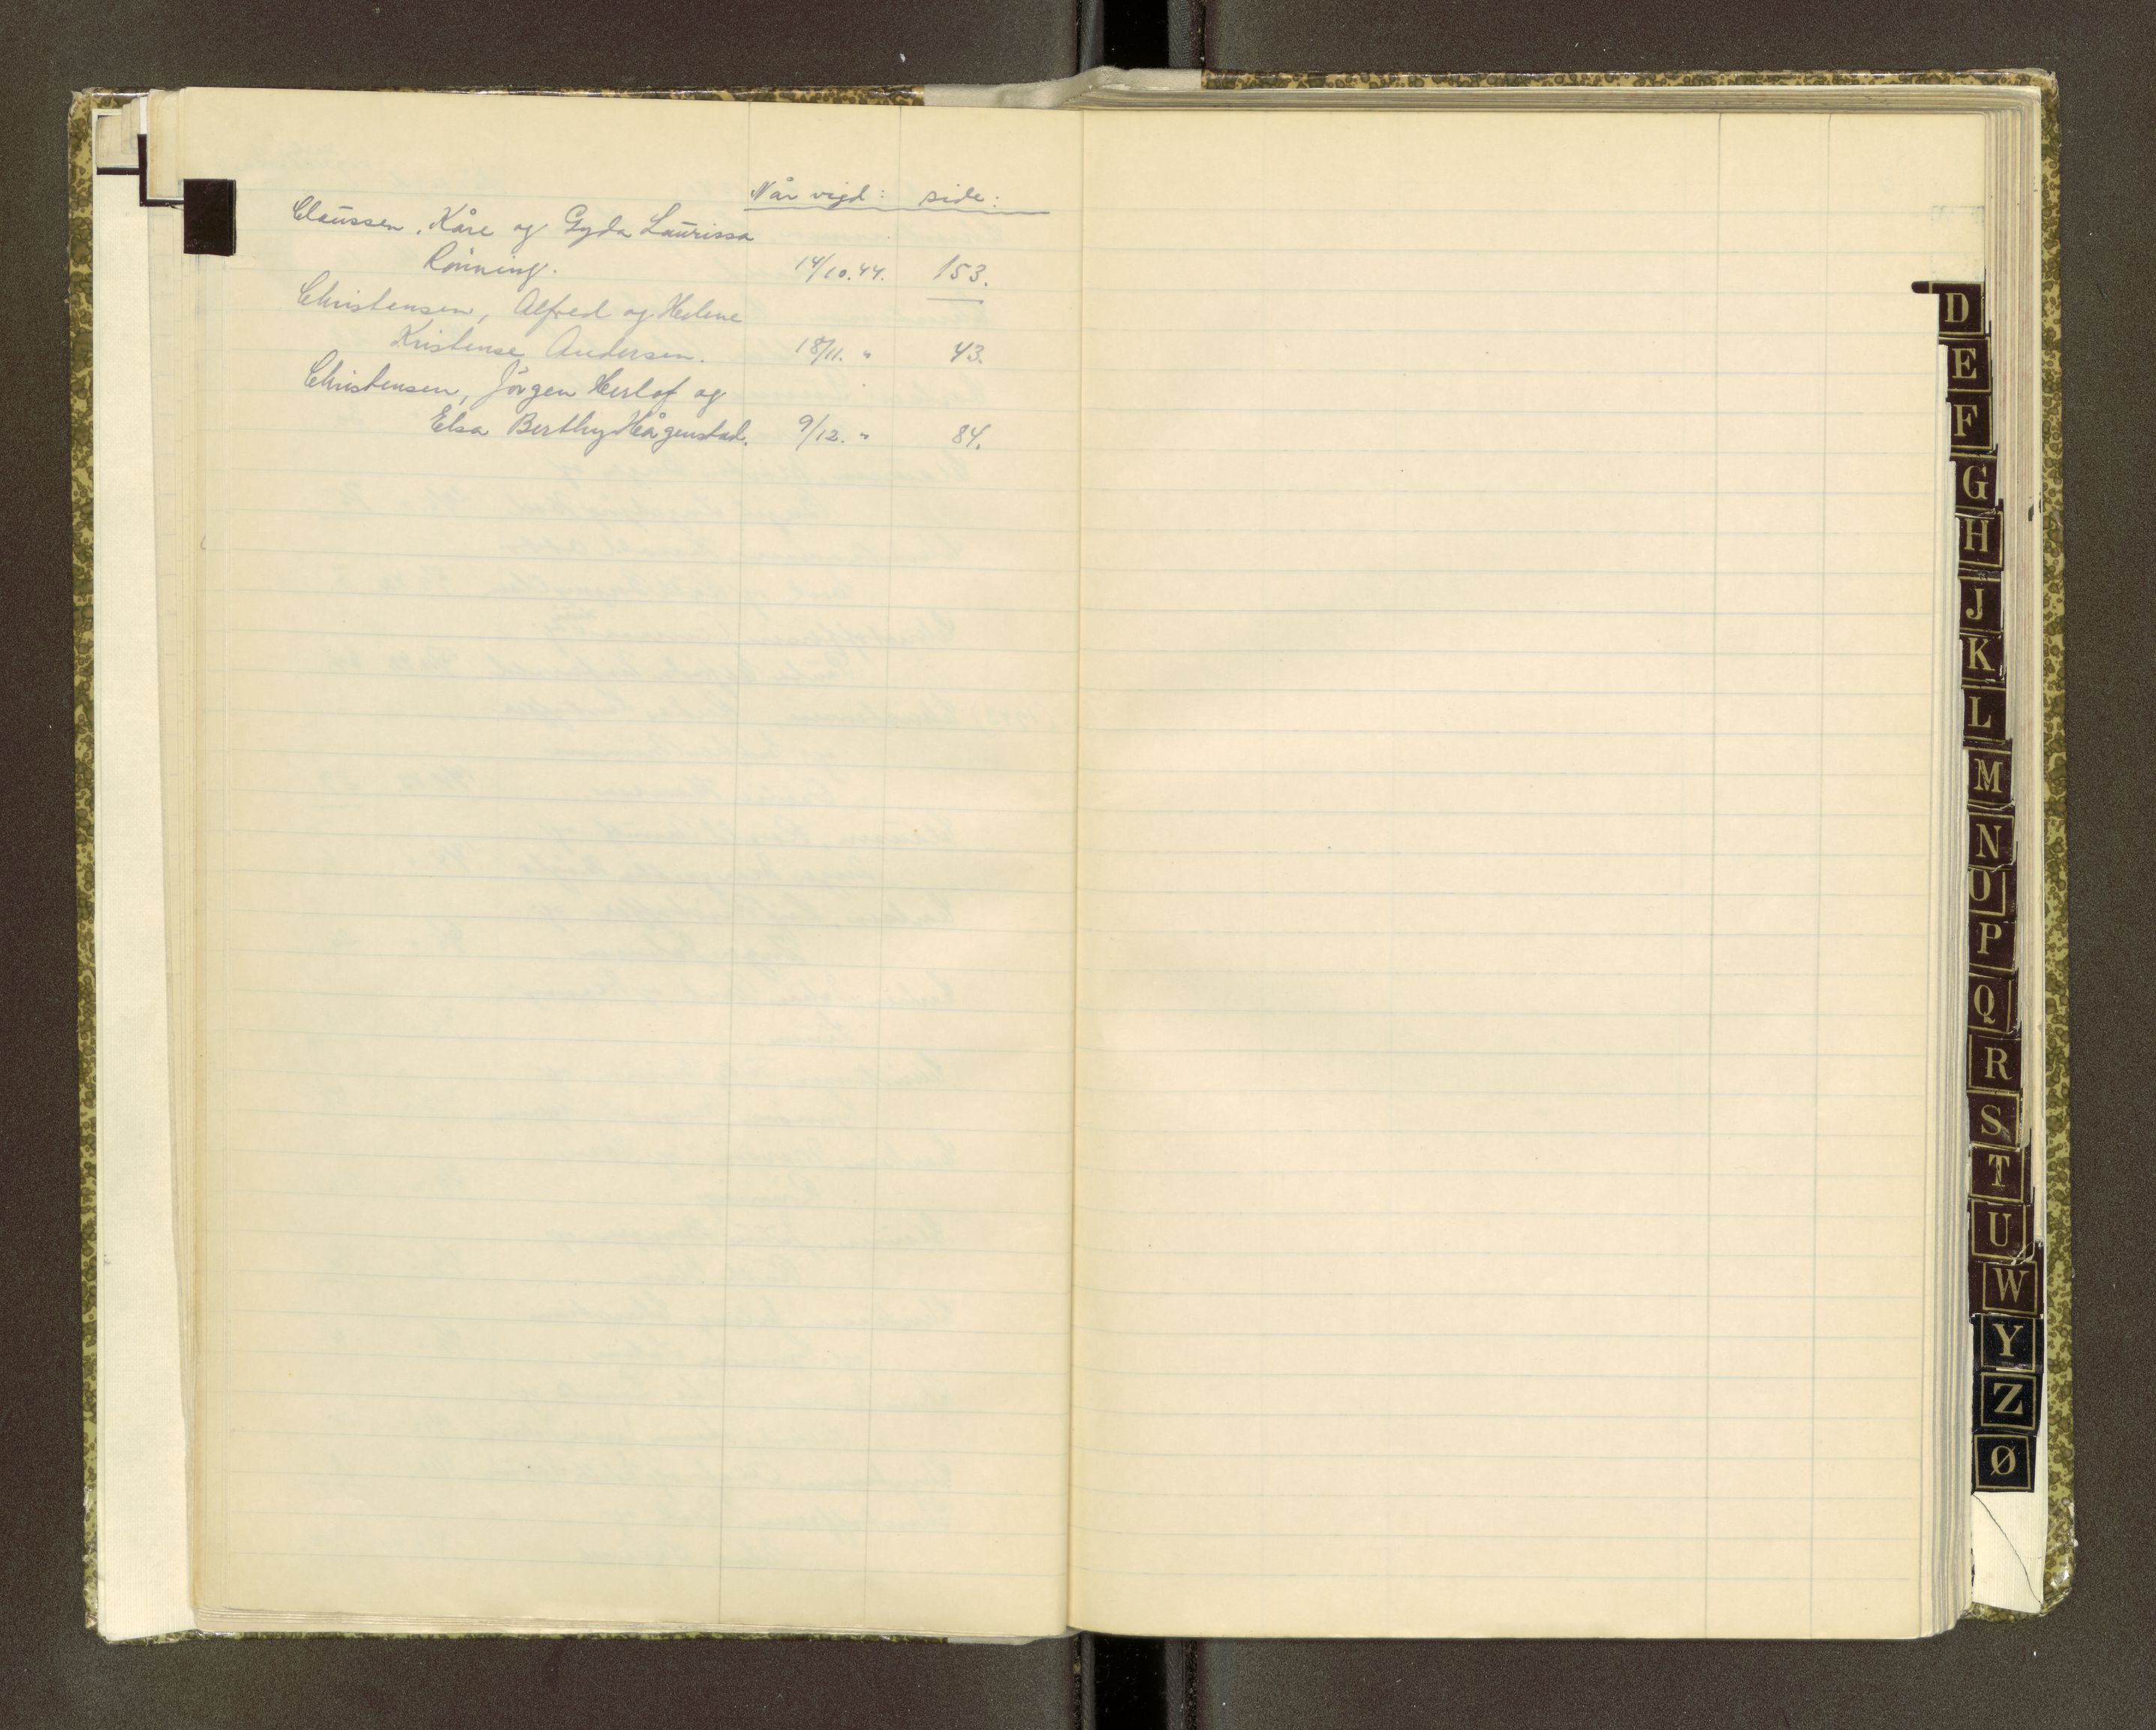 Når vigd: side:
Claussen, Kåre og Gyda Laurissa
Rönning. 14/10.44. 153.
Christensen, Alfred og Helene
Kristense Andersen. 18/11. " 43.
Christensen, Jörgen Herlof og
Elsa Berthy Hågenstad. 9/12. " 84.
D
E
F
G
H
J
K
L
M
N
O
P
Q
R
S
T
U
W
Y
Z
Ø